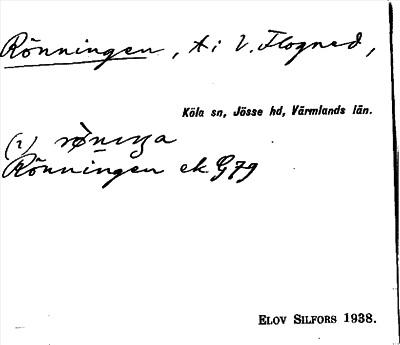 Rönningen, t i V. Flogned,
Köla sn, Jösse hd, Värmlands län.
(2)
Rönningen ek. G79
ELOV SILFORS 1938.